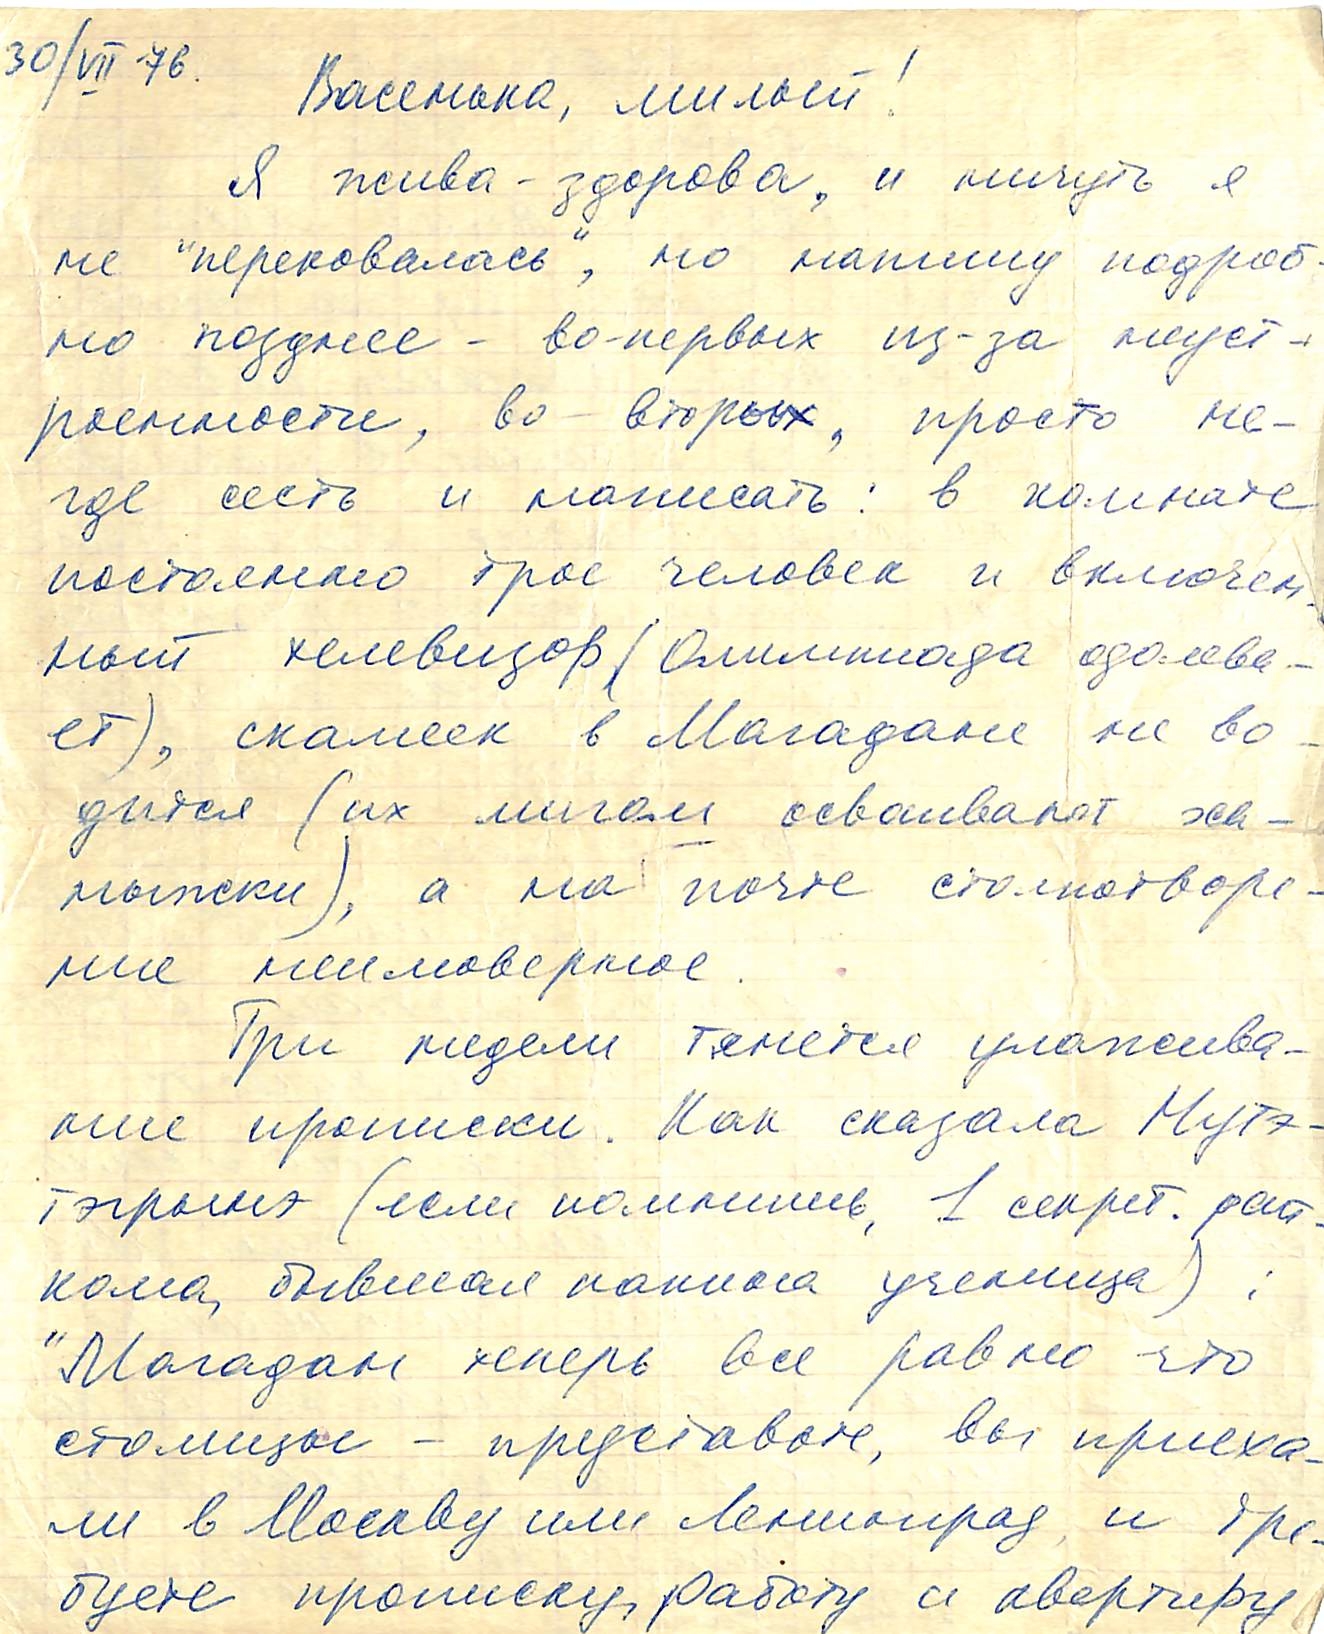 30/VII 76.
Васенька, милый!
Я жива-здорова, и ничуть я
не "перековалась", но напишу подроб-
но позднее - во-первых из-за неуст-
роенности, во-вторых, просто не-
где сесть и написать: в комнате
постоянно трое человек и включен-
ный телевизор (Олимпиада одолева-
ет), скамеек в Магадане не во-
дится (их мигом осваивают ха-
ныжки), а на почте столпотворе-
ние неимоверное.
Три недели тянется улажива-
ние прописки. Как сказала Нутэ-
тэгрынэ (если помнишь, 1 секрет. рай-
кома, бывшая папина ученица):
"Магадан теперь все равно что
столицы - представьте, вы приеха-
ли в Москву или Ленинград, и тре-
буете прописку, работу и квартиру